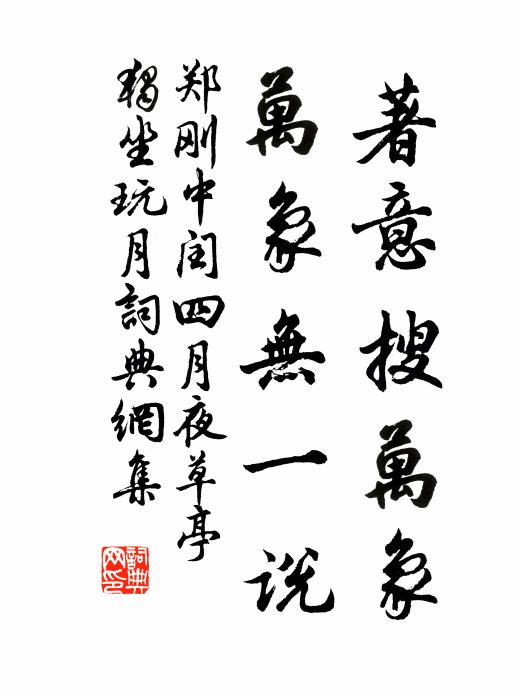 著意搜萬象
萬象無一説
郑刚中閏四月夜草亭
獨坐玩月詞典網集
詞典
网印